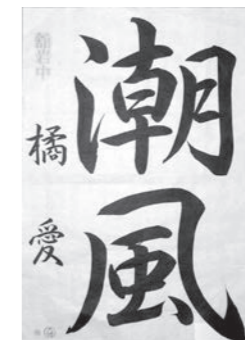 潮風
橘 愛